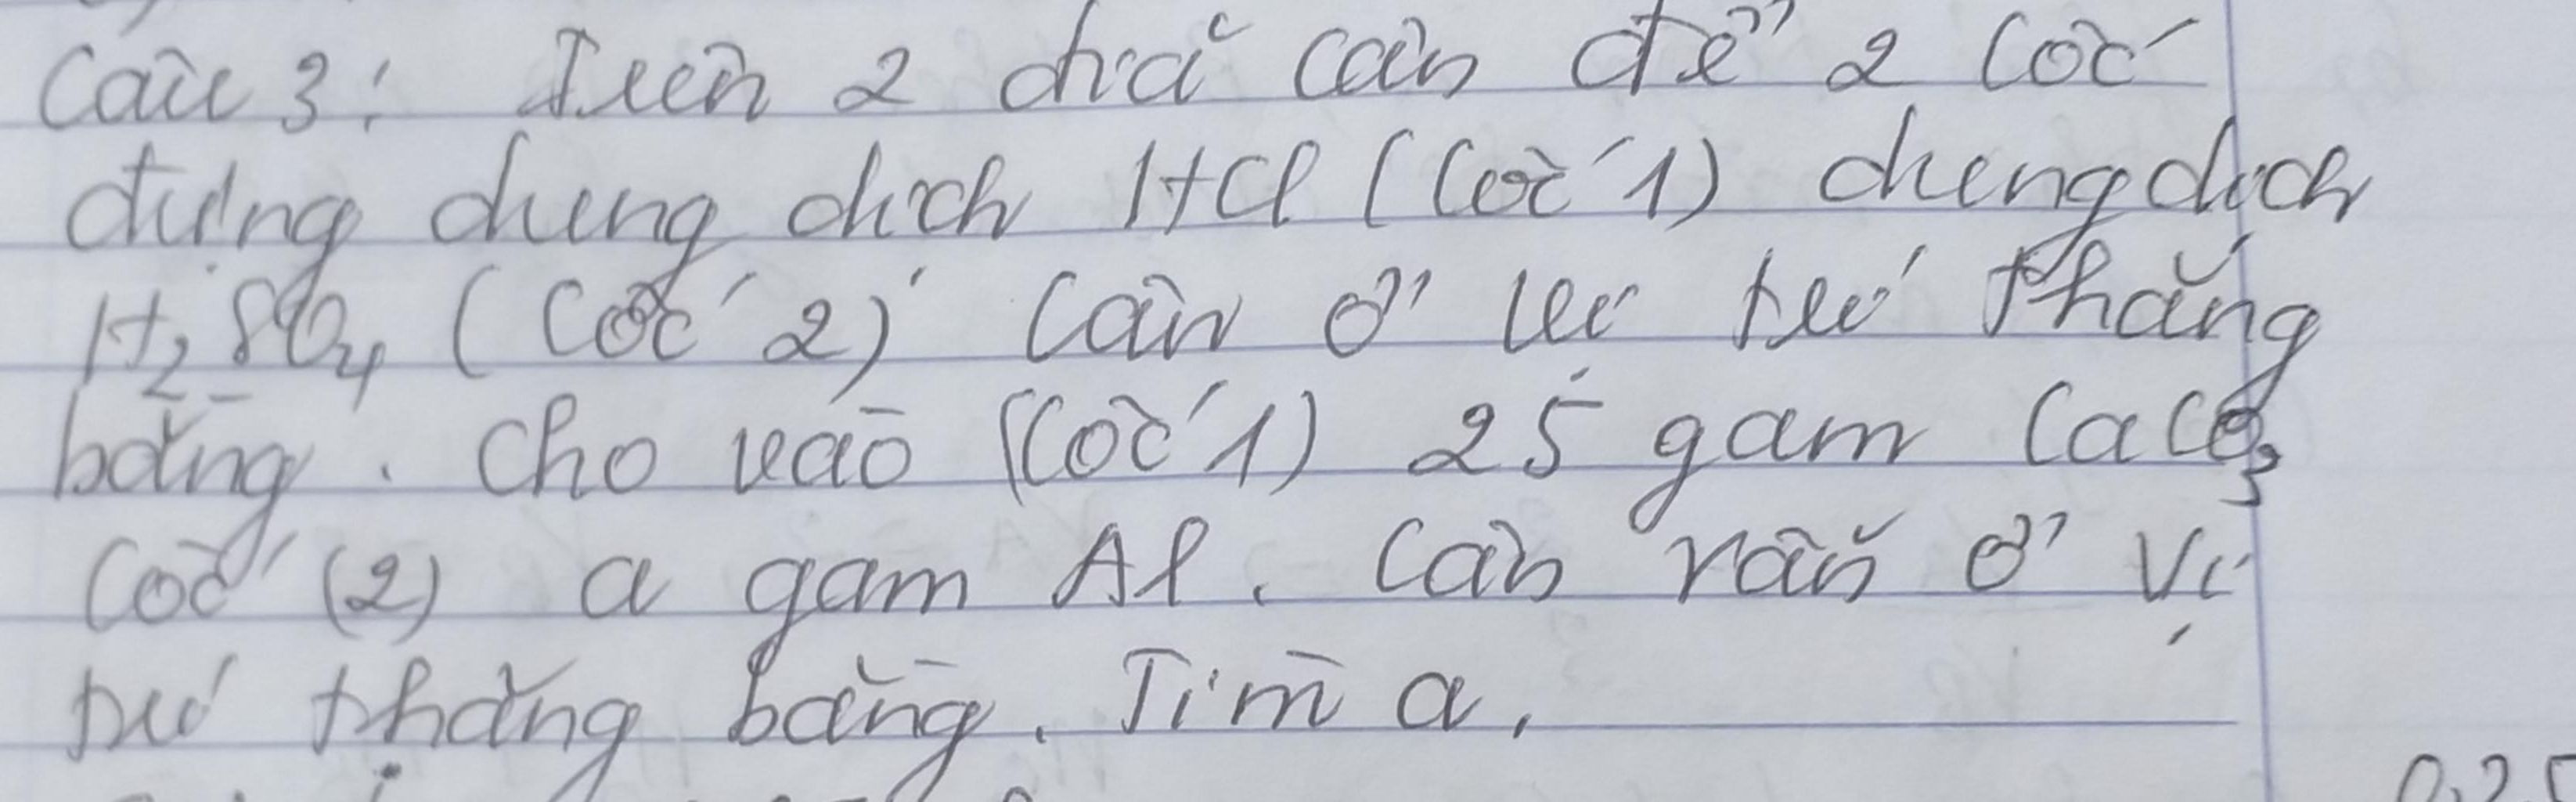 Câu 3: Trên 2 đĩa cân để 2 cốc
đựng dung dịch HCl (cốc 1) dung dịch
H₂SO₄ (cốc 2) cân ở vị trí thăng
bằng. Cho vào (cốc 1) 25 gam CaCO₃
cốc (2) a gam Al. Cân vẫn ở vị
trí thăng bằng. Tìm a.